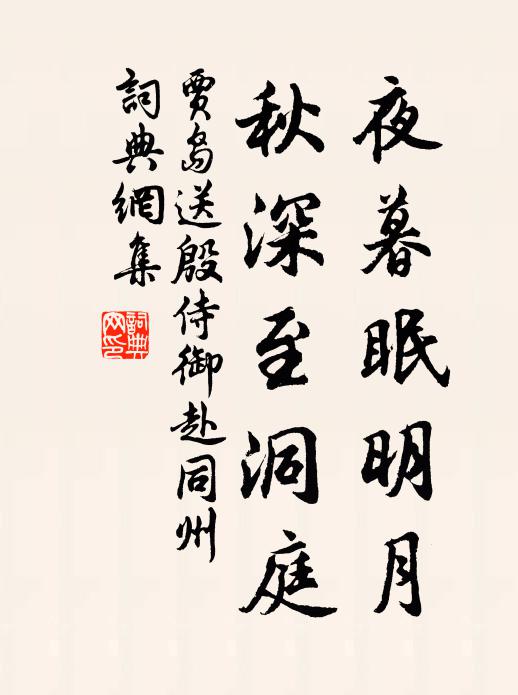 夜暮眠明月
秋深至洞庭
賈島送殷侍御赴同州
詞典網集
詞典网印